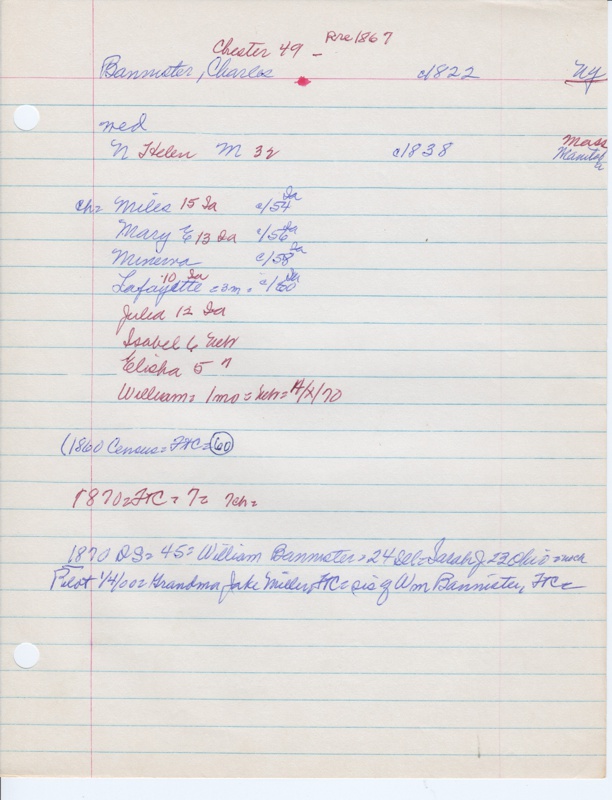 Chester 49 - Pre 1867
Bannister, Charles c/1822 NY
wed
N Helen M 32 c/1838 Mass
ch= Miles 15 Ia c/54 Ia
Mary E 13 Ia c/56 Ia
Minerva c/58 Ia
10 Ia
Lafayette = 3m = c/60 Ia
Julia 12 Ia
Isabel 6 Neb
Elisha 5 "
William = 1mo = Neb =
(1860 Census = FtC = 60
1870 = FtC = 7 =
1870 DS = 45 = William Bannister = 24 = Sarah J = 22 Ohio =
Pilot 1/4/00 = Grandma Jake Miller, FtC = sis of Wm Bannister, FtC =